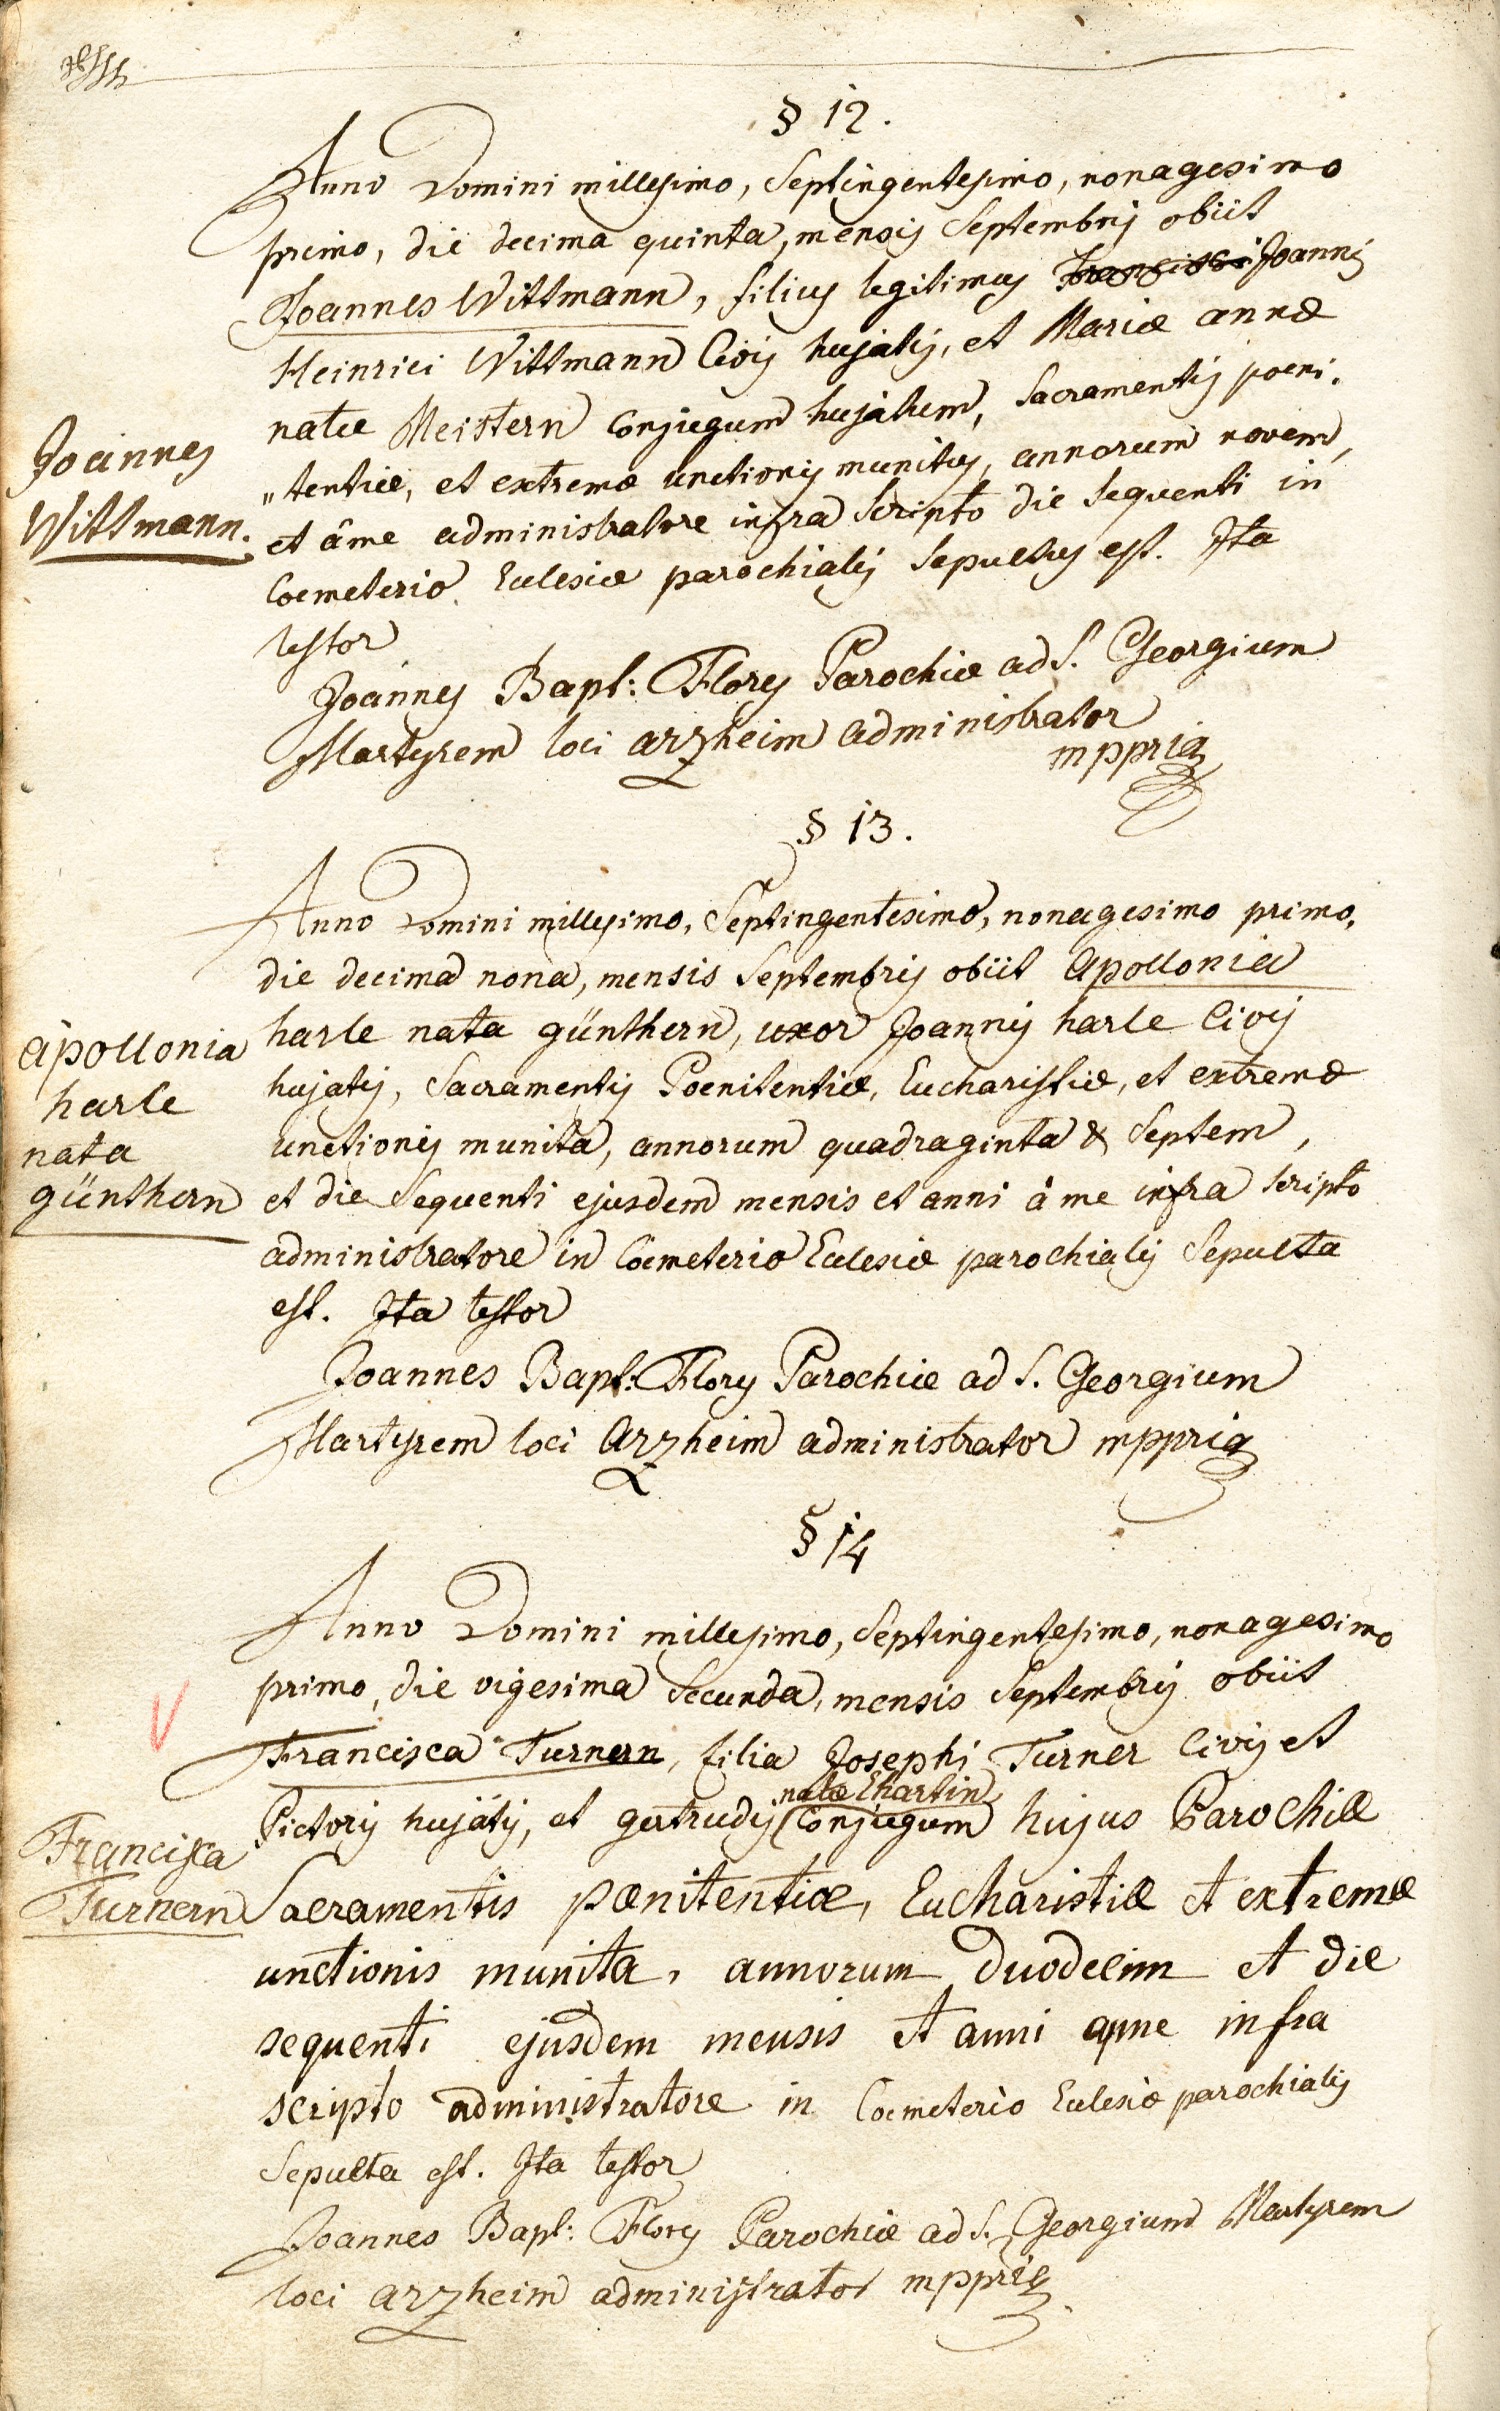 § 12.
Anno Domini millesimo, Septingentesimo, nonagesimo
primo, die decima quinta, mensis Septembris obiit
Joannes Wittmann, filius legitimus Joannis
Heinrici Wittmann Civis hujatis, et Mariæ annæ
natæ Meistern Conjugum hujatum, Sacramentis poeni-
Joannes
„tentiæ, et extremæ unctionis munitus, annorum novem,
Wittmann.
et â me administratore infra Scripto die Sequenti in
Coemeterio Eclesiæ parochialis Sepultus est. Ita
testor
Joannes Bapt: Flory Parochiæ ad S. Georgium
Martyrem loci arzheim administrator
mppria
§ 13.
Anno Domini millesimo, Septingentesimo, nonagesimo primo,
die decima nona, mensis Septembris obiit Apollonia
harle nata günthern, uxor Joannis harle Civis
Apollonia
harle
nata
günthern
hujatis, Sacramentis Poenitentiæ, Eucharistiæ, et extremæ
unctionis munita, annorum quadraginta & Septem,
et die Sequenti ejusdem mensis et anni à me infra scripto
administratore in Coemeterio Eclesiæ parochialis Sepulta
est. Ita testor
Joannes Bapt: Flory Parochiæ ad S. Georgium
Martyrem loci Arzheim administrator mppria
§ 14
Anno Domini millesimo, Septingentesimo, nonagesimo
primo, die vigesima Secunda, mensis Septembris obiit
Francisca Turnern, filia Josephi Turner Civis et
natæ Ehartin
Pictoris hujatis, et gertrudis Conjugum hujus Parochiæ
Francisca
Turnern
Sacramentis pænitentiæ, Eucharistiæ et extremæ
unctionis munita, annorum duodecim et die
sequenti ejusdem mensis et anni a me infra
scripto administratore in Coemeterio Eclesiæ parochialis
Sepulta est. Ita testor
Joannes Bapt: Flory Parochiæ ad S. Georgium Martyrem
loci arzheim administrator mppria